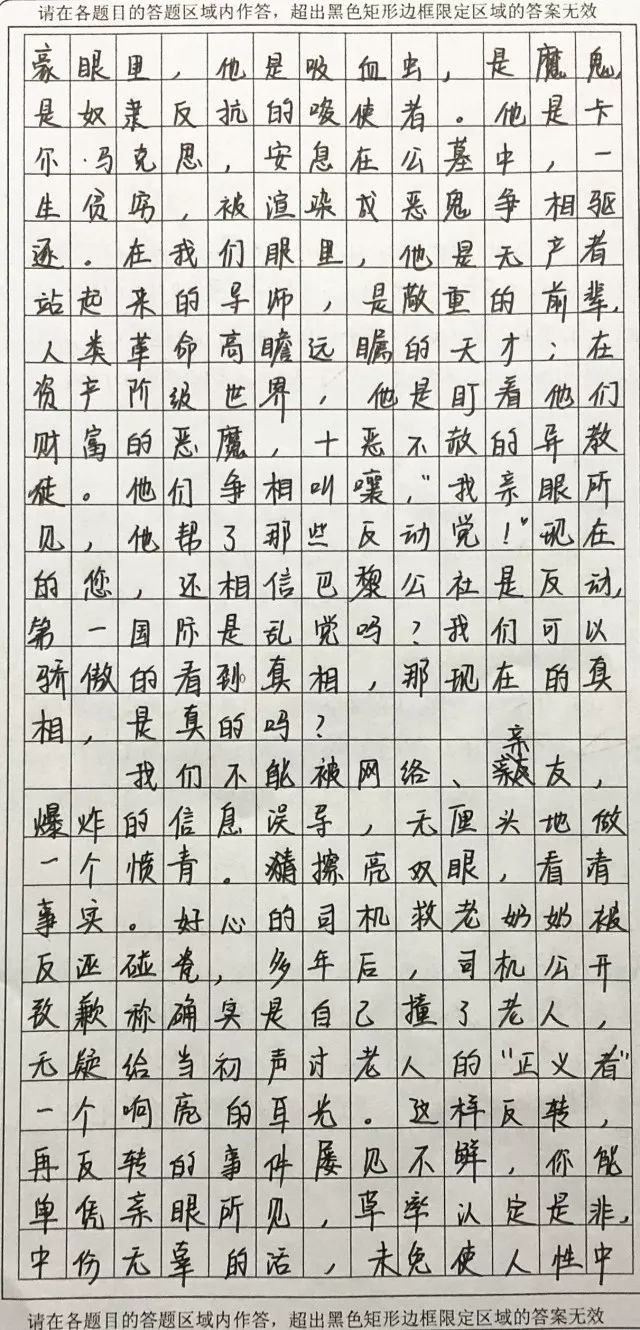 请在各题目的答题区域内作答，超出黑色矩形边框限定区域的答案无效
豪眼里，他是吸血虫，是魔鬼，
是奴隶反抗的唆使者。他是卡
尔·马克思，安息在公墓中，一
生贫穷，被渲染成恶鬼争相驱
逐。在我们眼里，他是无产者
站起来的导师，是敬重的前辈，
人类革命高瞻远瞩的天才；在
资产阶级世界，他是盯着他们
财富的恶魔，十恶不赦的异教
徒。他们争相叫嚷，“我亲眼所
见，他帮了那些反动党！”现在
的您，还相信巴黎公社是反动，
第一国际是乱党吗？我们可以
骄傲的看到真相，那现在的真
相，是真的吗？
我们不能被网络、亲友，
爆炸的信息误导，无厘头地做
一个愤青。请擦亮双眼，看清
事实。好心的司机救老奶奶被
反诬碰瓷，多年后，司机公开
致歉称确实是自己撞了老人，
无疑给当初声讨老人的“正义者”
一个响亮的耳光。这样反转，
再反转的事件屡见不鲜，你能
单凭亲眼所见，草率认定是非，
中伤无辜的话，未免使人性中
请在各题目的答题区域内作答，超出黑色矩形边框限定区域的答案无效